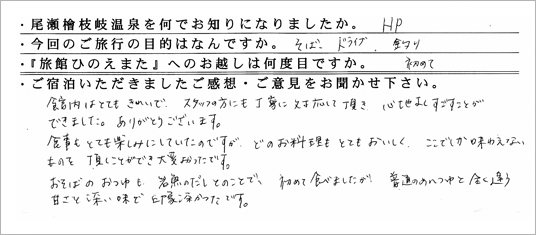 ・尾瀬檜枝岐温泉を何でお知りになりましたか。 HP
・今回のご旅行の目的はなんですか。 そば、ドライブ、釣り
・『旅館ひのえまた』へのお越しは何度目ですか。 初めて
・ご宿泊いただきましたご感想・ご意見をお聞かせ下さい。
館内はとても きれいで、スタッフの方にも 丁寧に 対応して頂き 心地よくすごすことが
できました。ありがとうございます。
食事も とても楽しみにしていたのですが、どのお料理も とてもおいしく、ここでしか味わえない
ものを 頂くことができ 大変よかったです。
おそばの おつゆも 岩魚のだしとのことで、初めて食べましたが、普通のめんつゆと全く違う
甘さと深い味で 印象深かったです。